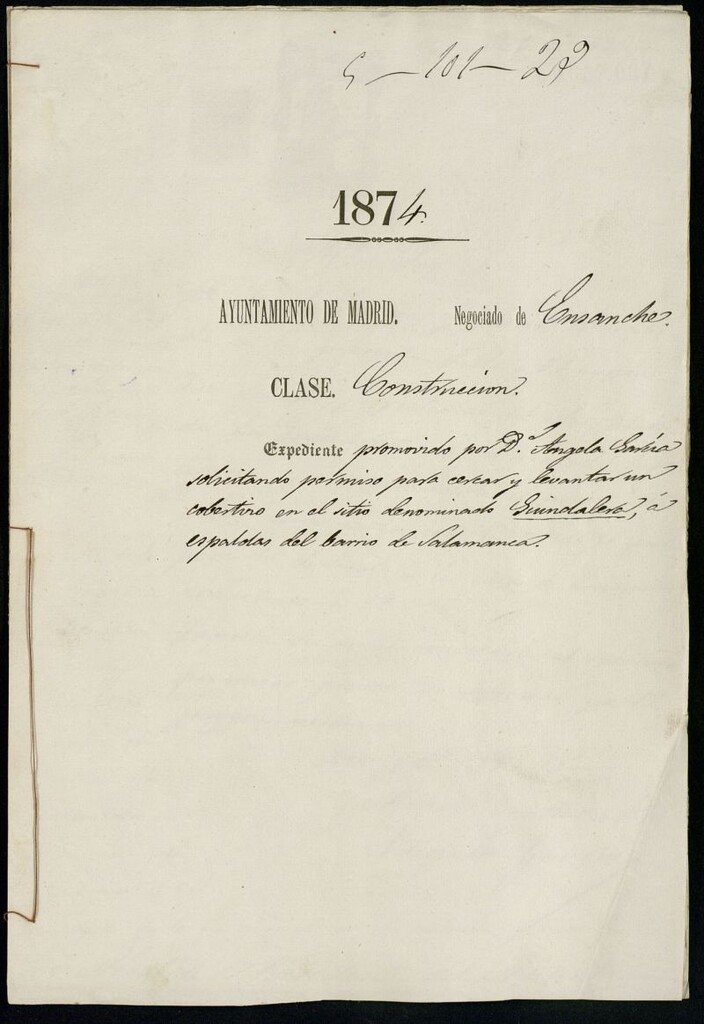 5-101-22
1874.
AYUNTAMIENTO DE MADRID. Negociado de Ensanche.
CLASE. Construccion.
Expediente promovido por D.ª Angela García
solicitando permiso para cercar y levantar un
cobertizo en el sitio denominado Guindalera, á
espaldas del barrio de Salamanca.